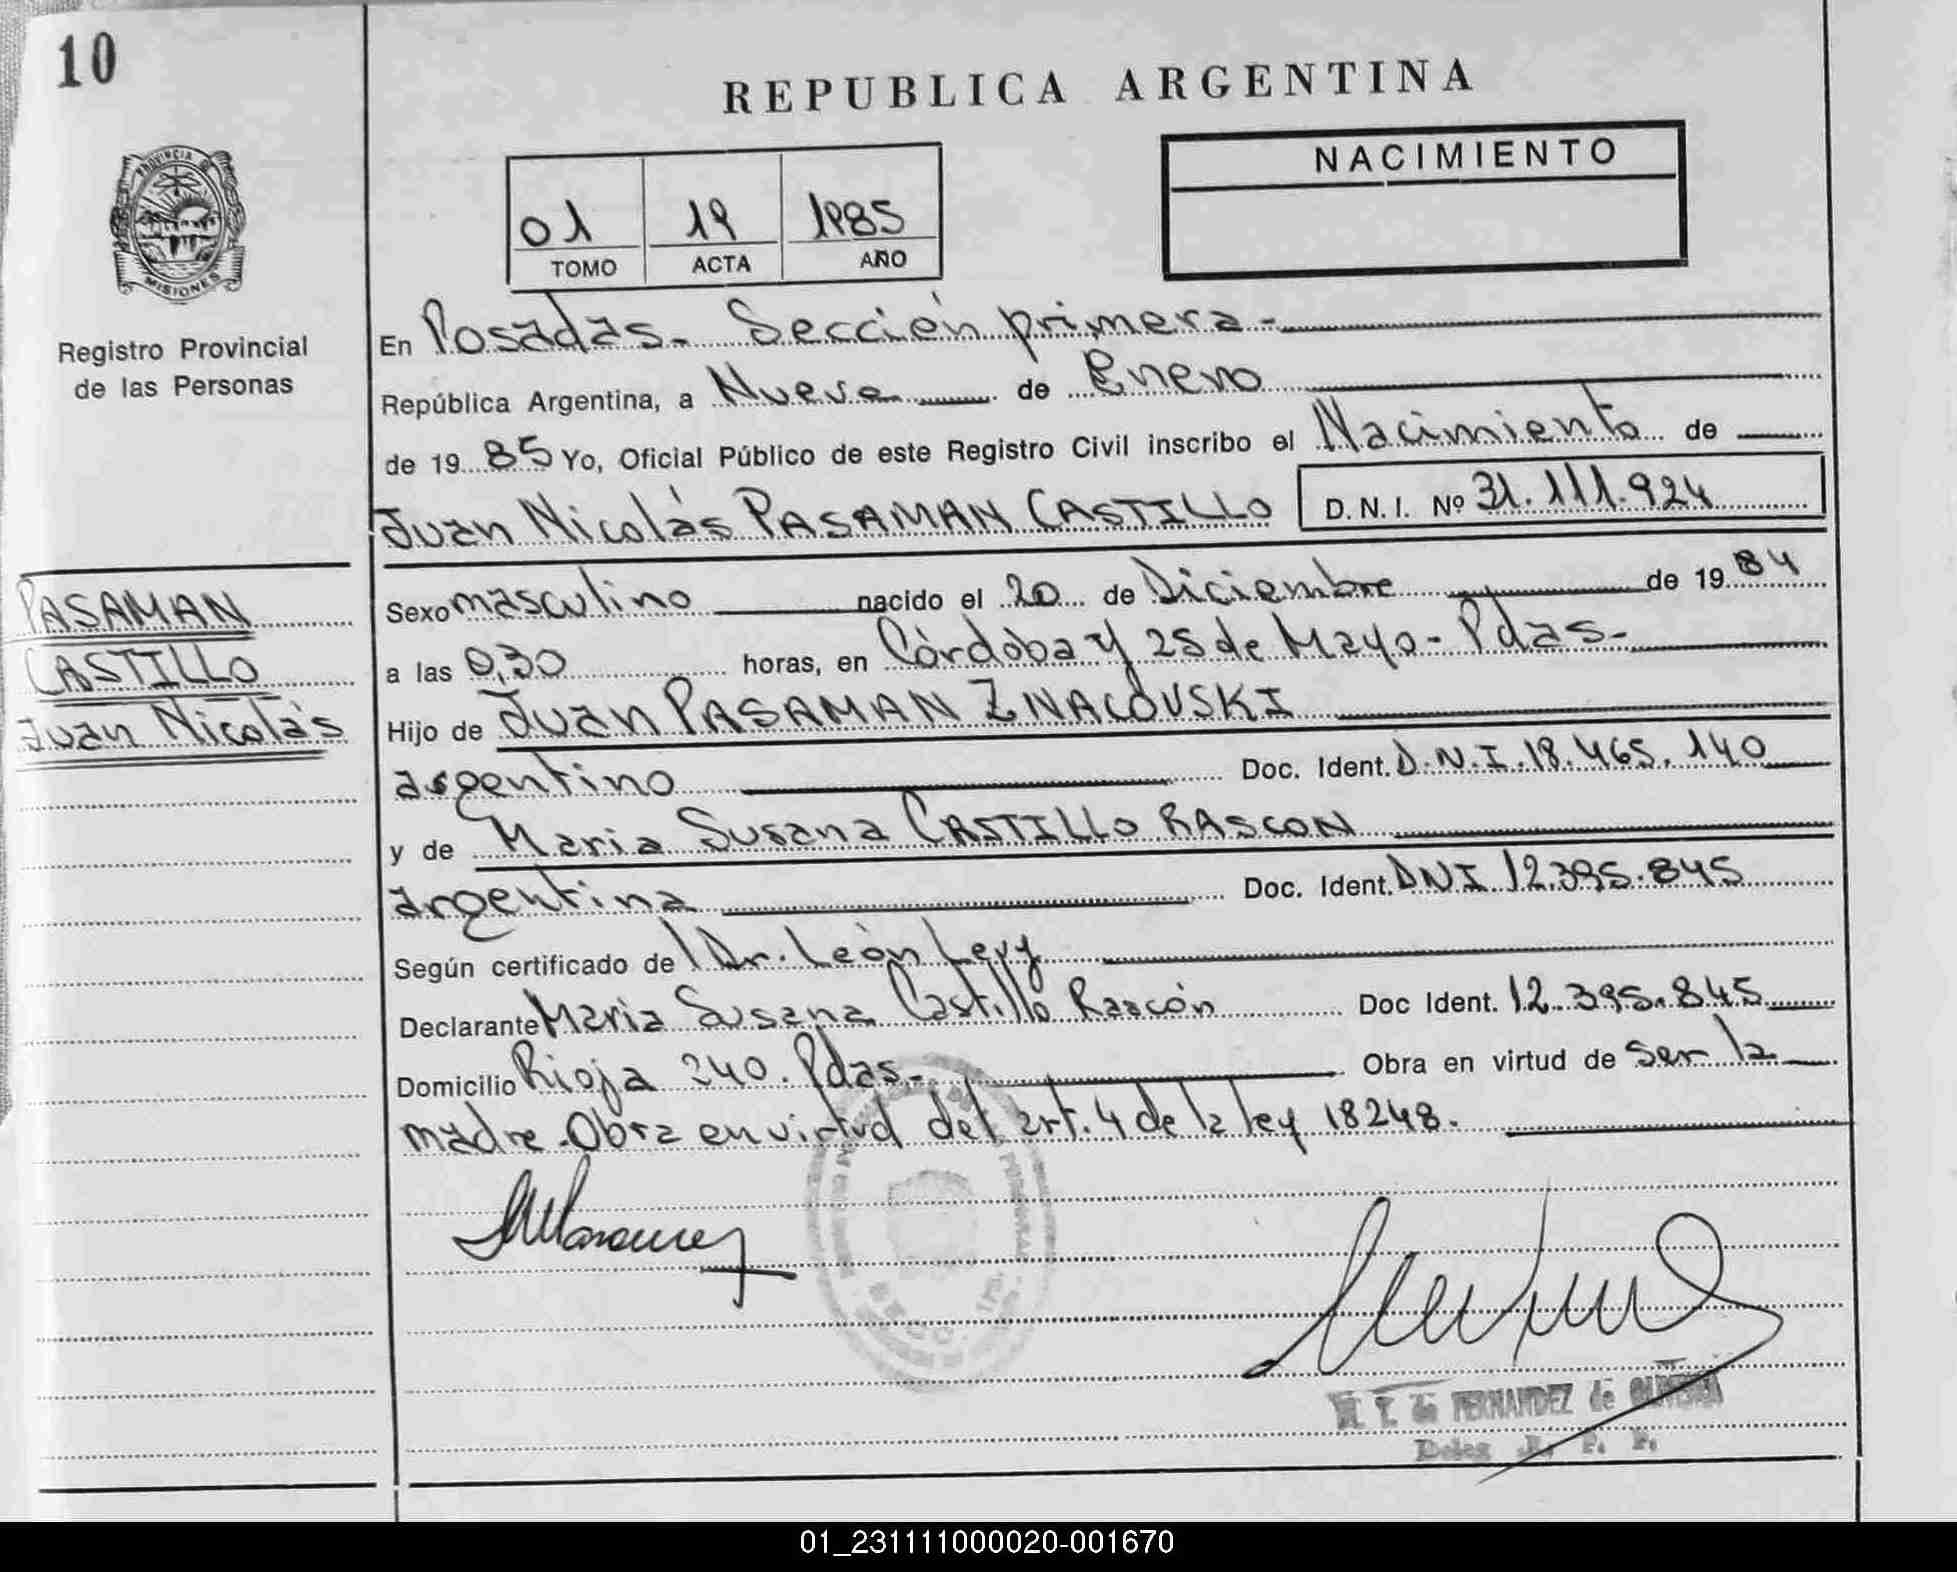 10
REPUBLICA ARGENTINA
NACIMIENTO
01 19 1985
TOMO ACTA AÑO
PROVINCIA DE
MISIONES
Registro Provincial
de las Personas
En Posadas. Sección primera-
República Argentina, a Nueve de Enero
de 19 85 Yo, Oficial Público de este Registro Civil inscribo el Nacimiento de
Juan Nicolás PASAMAN CASTILLO D.N.I. Nº 31.111.924
PASAMAN
CASTILLO
Juan Nicolás
Sexo masculino nacido el 20 de Diciembre de 19 84
a las 0,30 horas, en Córdoba y 25 de Mayo- Pdas-
Hijo de Juan PASAMAN ZNACOVSKI
argentino Doc. Ident. D.N.I. 18.465.140
y de Maria Susana CASTILLO RASCON
argentina Doc. Ident. DNI 12.395.845
Según certificado del Dr. León Levy
Declarante Maria Susana Castillo Rascón Doc Ident. 12.395.845
Domicilio Rioja 240. Pdas- Obra en virtud de ser la
madre. Obra en virtud del art. 4 de la ley 18248.
FERNANDEZ de OLIVEIRA
Deleg. R. P. P.
01_231111000020-001670